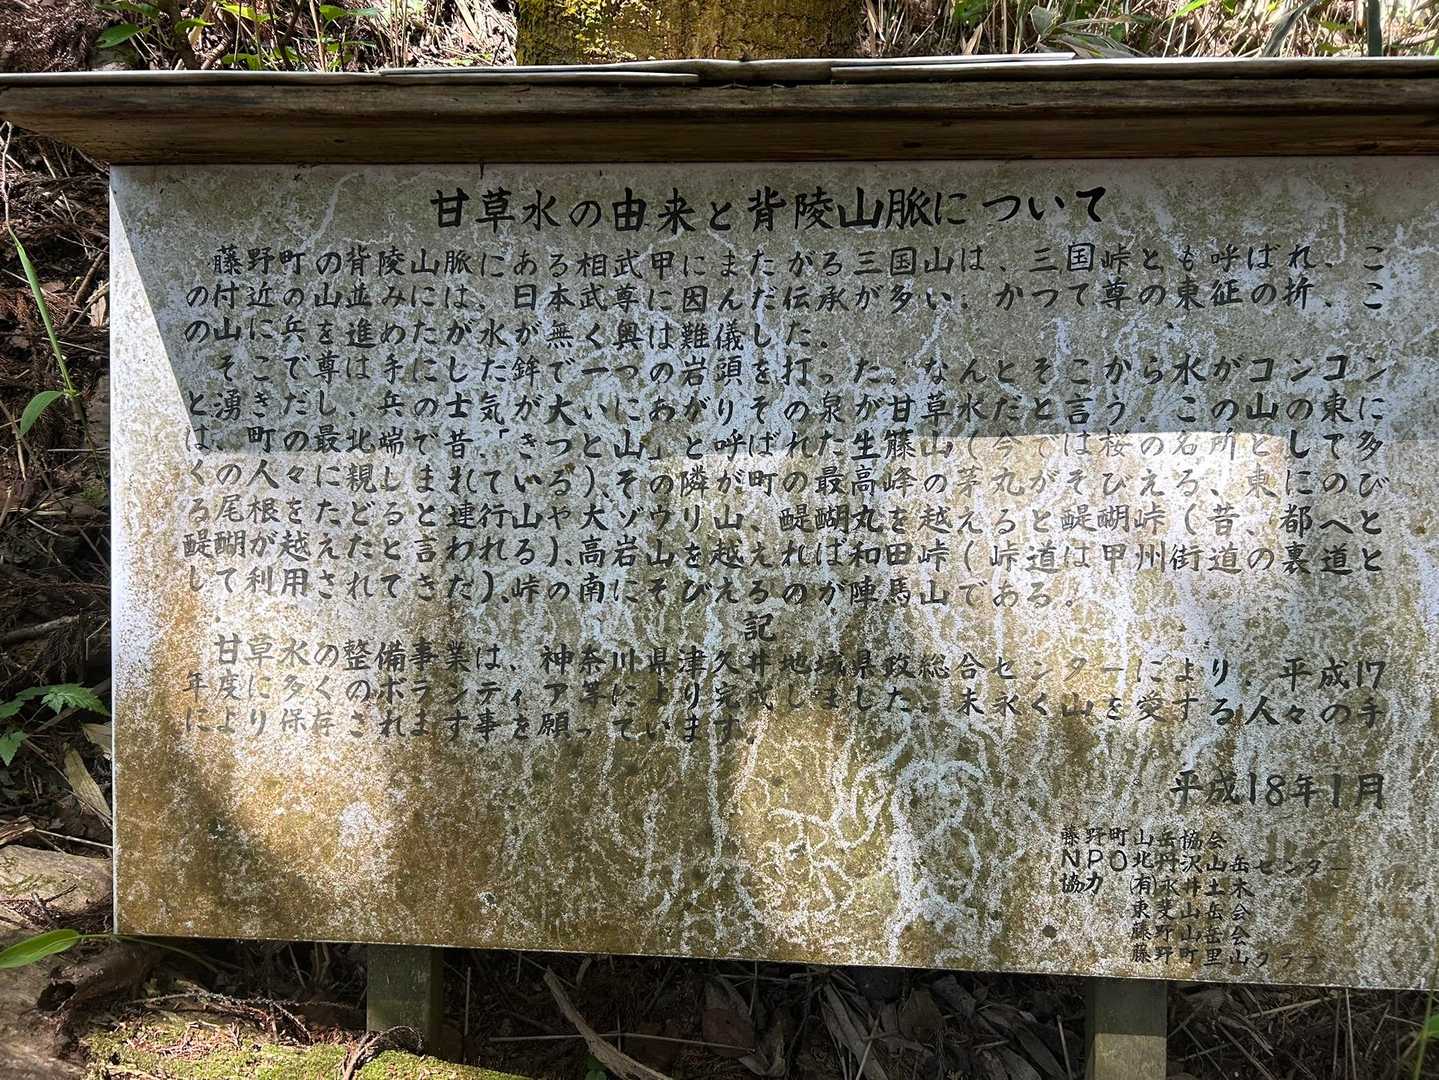 甘草水の由来と背陵山脈について
藤野町の背陵山脈にある相武甲にまたがる三国山は、三国峠とも呼ばれ、ここ
の付近の山並みには、日本武尊に因んだ伝承が多い。かつて尊の東征の折、ここ
の山に兵を進めたが水が無く興は難儀した。
そこで尊は手にした鉾で一つの岩頭を打った。なんとそこから水がコンコン
と湧きだし、兵の士気が大いにあがりその泉が甘草水だと言う.この山の東に
は、町の最北端で昔「きつと山」と呼ばれた生藤山(今では桜の名所として多
くの人々に親しまれている)、その隣が町の最高峰の茅丸がそびえ、東にのび
る尾根をたどると連行山や、大ゾウリ山、醍醐丸を越えると醍醐峠(昔、都へと
醍醐が越えたと言われる)、高岩山を越えれば和田峠(道は甲州街道の裏道と
して利用されてきた)、峠の南にそびえるのが陣馬山である。
記
甘草水の整備事業は、神奈川県津久井地域県政総合センターにより、平成17
年度に多くのボランティア等により完成しました。末永く山を愛する人々の手
により保存されます事を願っています。
平成18年1月
藤野町山岳協会
NPO北丹沢山岳センター
協力 (有)永井土木
東芝山岳会
藤野山岳会
藤野町里山クラブ